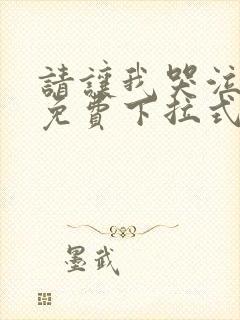 請讓我哭泣
免費下拉式
墨武